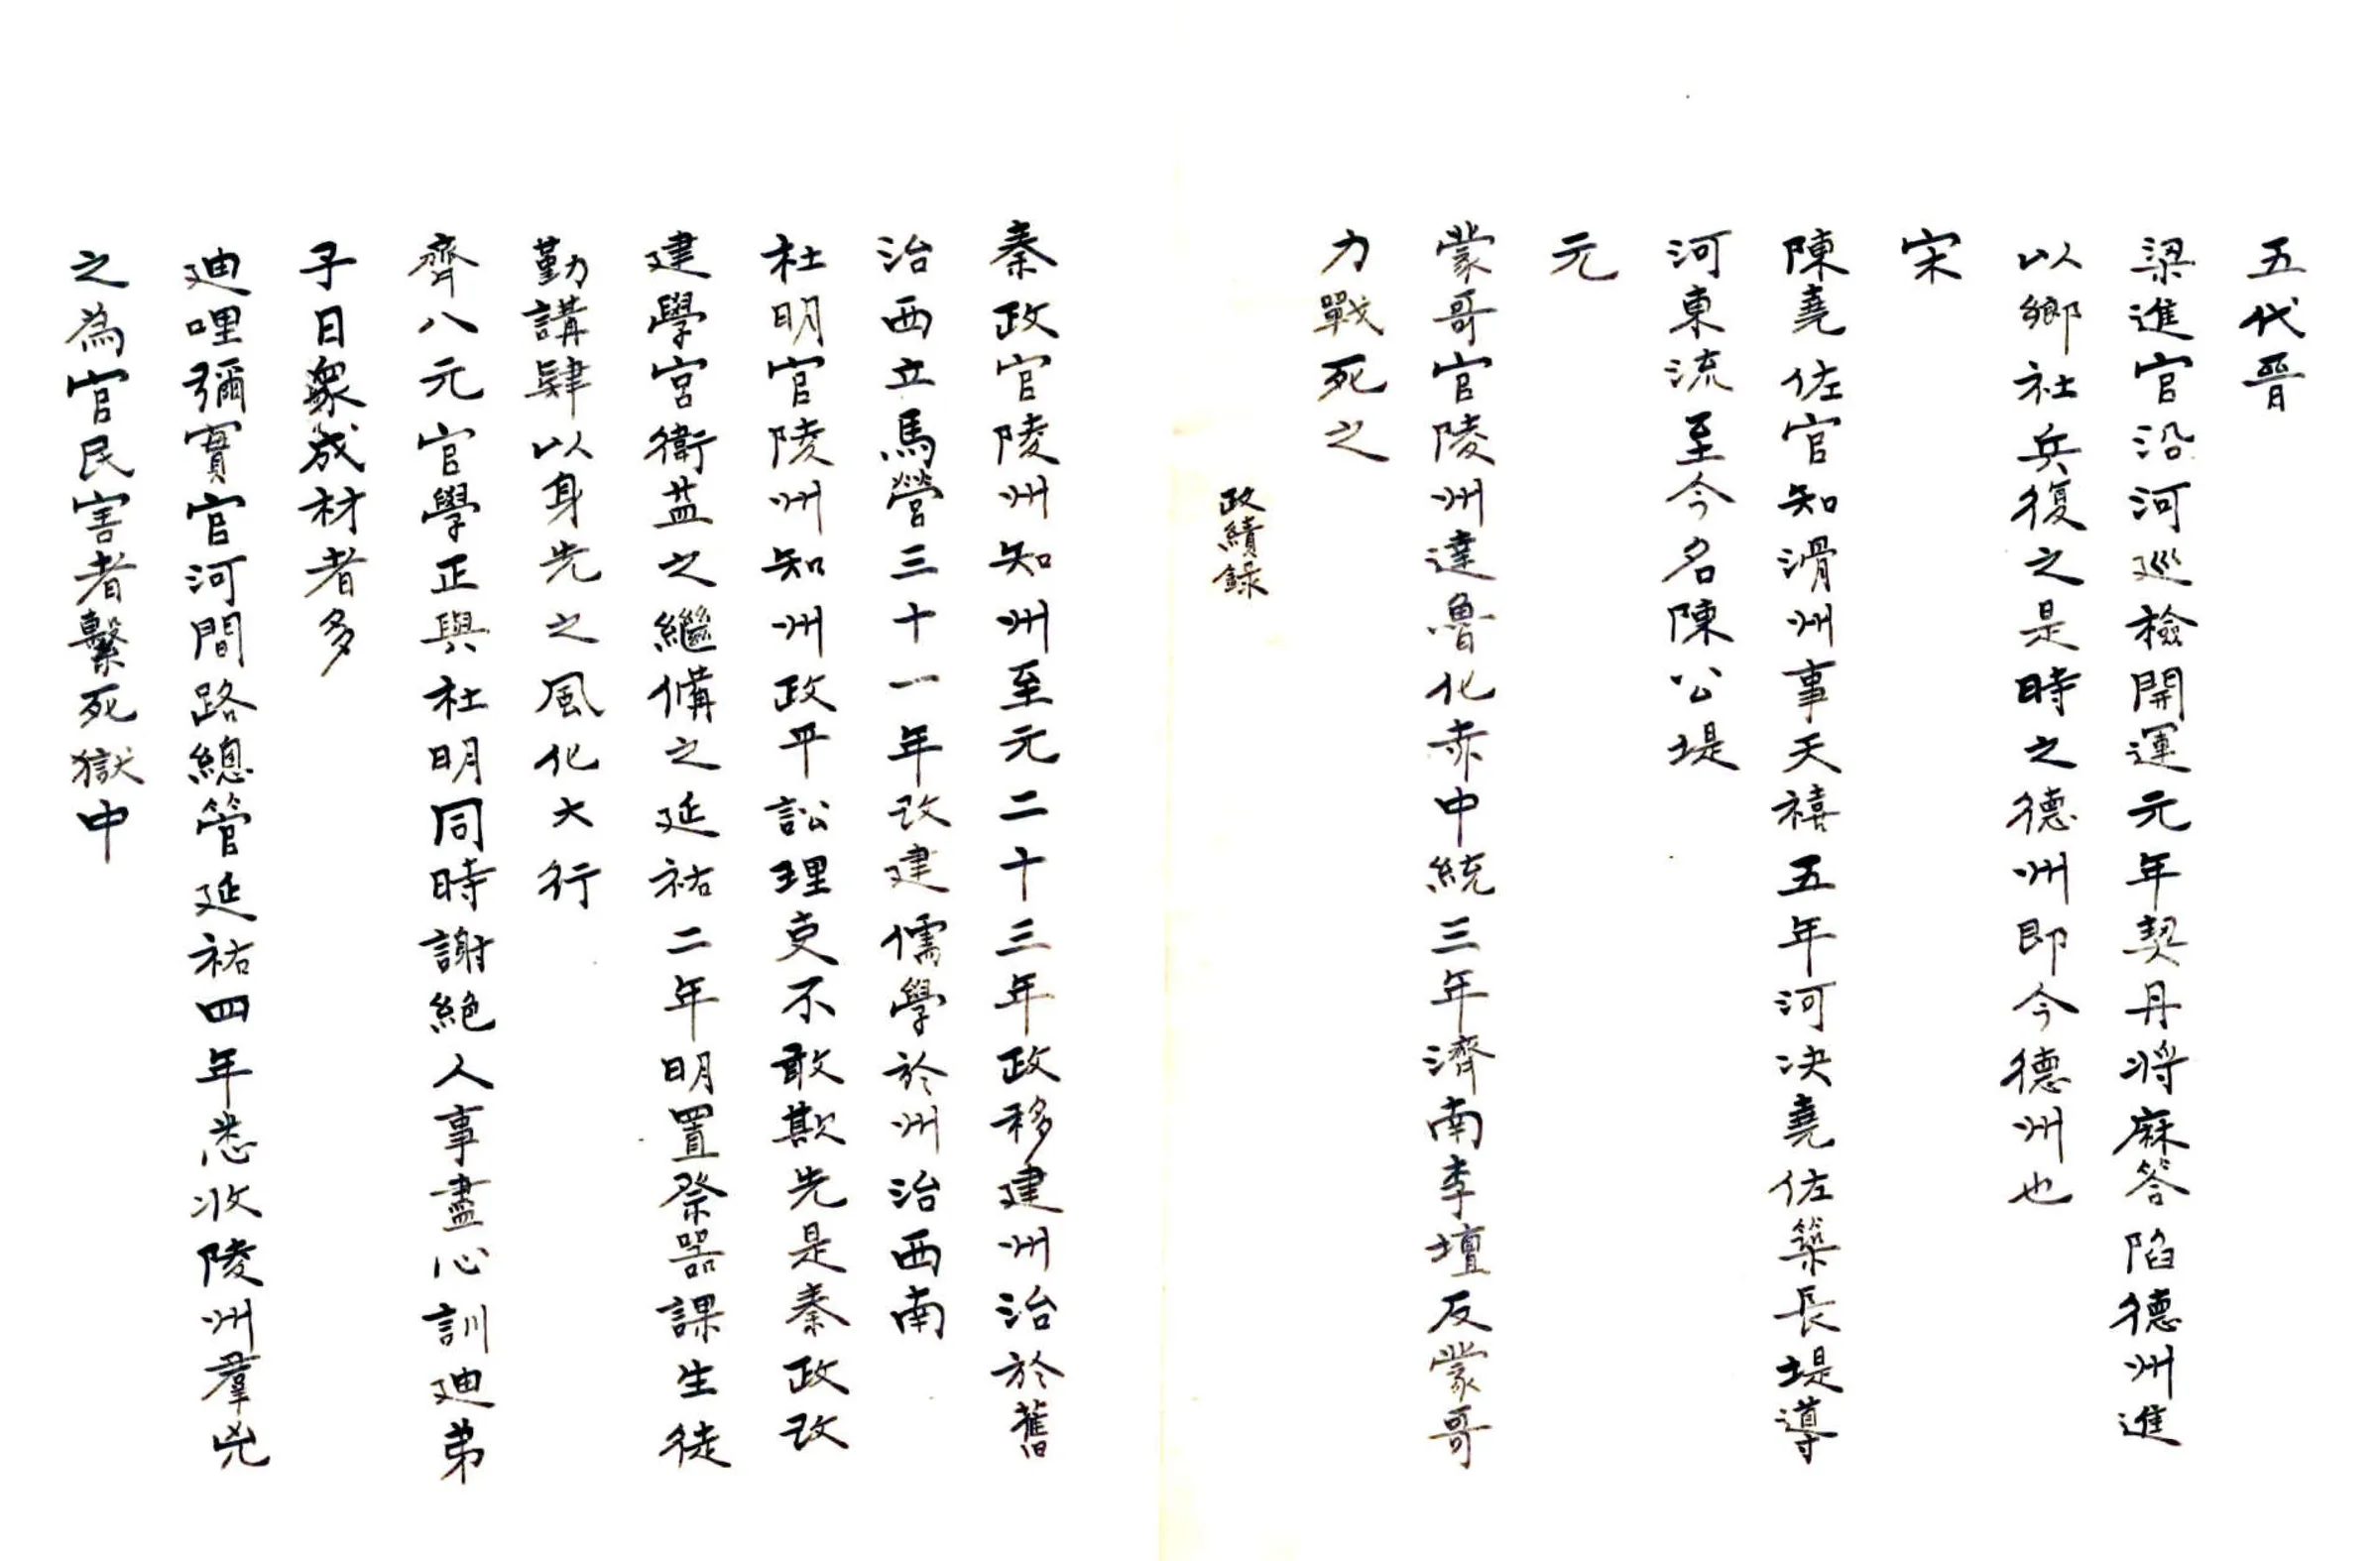 五代晉
梁進官沿河巡檢開運元年契丹将麻答陷德州進
以鄉社兵復之是時之德州即今德州也
宋
陳堯佐官知滑州事天禧五年河决堯佐築長堤導
河東流至今名陳公堤
元
蒙哥官陵州達魯化赤中統三年濟南李壇反蒙哥
力戰死之
政績錄
秦政官陵州知州至元二十三年政移建州治於舊
治西立馬營三十一年改建儒學於州治西南
杜明官陵州知州政平訟理吏不敢欺先是秦政改
建學宫衛葢之繼備之延祐二年明置祭器課生徒
勤講肆以身先之風化大行
齊八元官學正與杜明同時謝絶人事盡心訓迪弟
子日衆成材者多
迪哩彌實官河間路總管延祐四年悉收陵州羣兇
之為官民害者繫死獄中